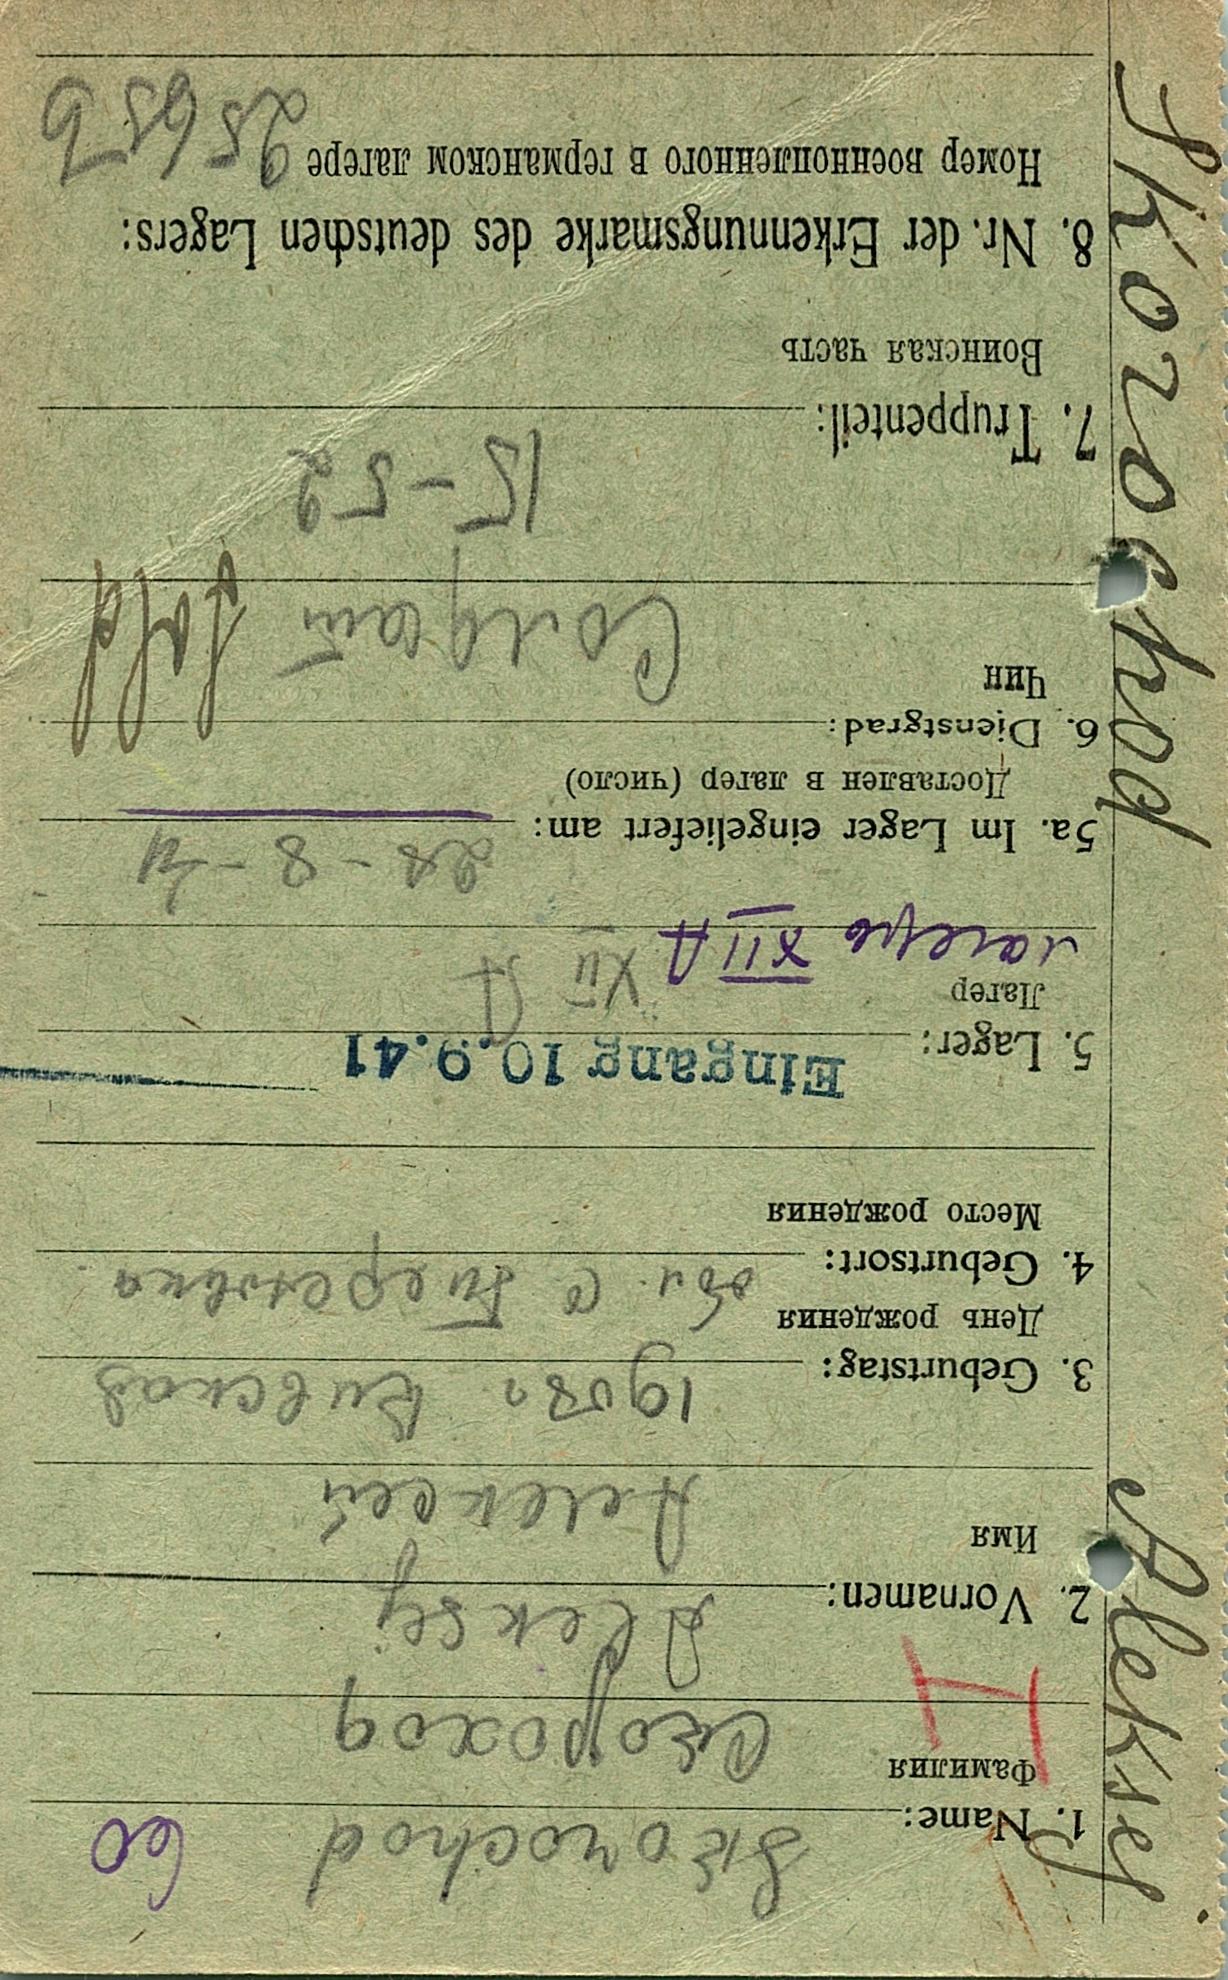 Skorochod Aleksej
1. Name: Skorochod 60
Фамилия
Скороход
2. Vornamen: Aleksej
Имя
Алексей
3. Geburtstag: 1908г Киевская
День рождения
4. Geburtsort: обл. с
Место рождения
Eingang 10.9.41
5. Lager: XII A
Лагер
лагерь XII A
5a. Im Lager eingeliefert am: 28-8-41
Доставлен в лагер (число)
6. Dienstgrad: Sold
Чин
Солдат
7. Truppenteil: 15-52
Воинская часть
8. Nr. der Erkennungsmarke des deutschen Lagers:
Номер военнопленного в германском лагере